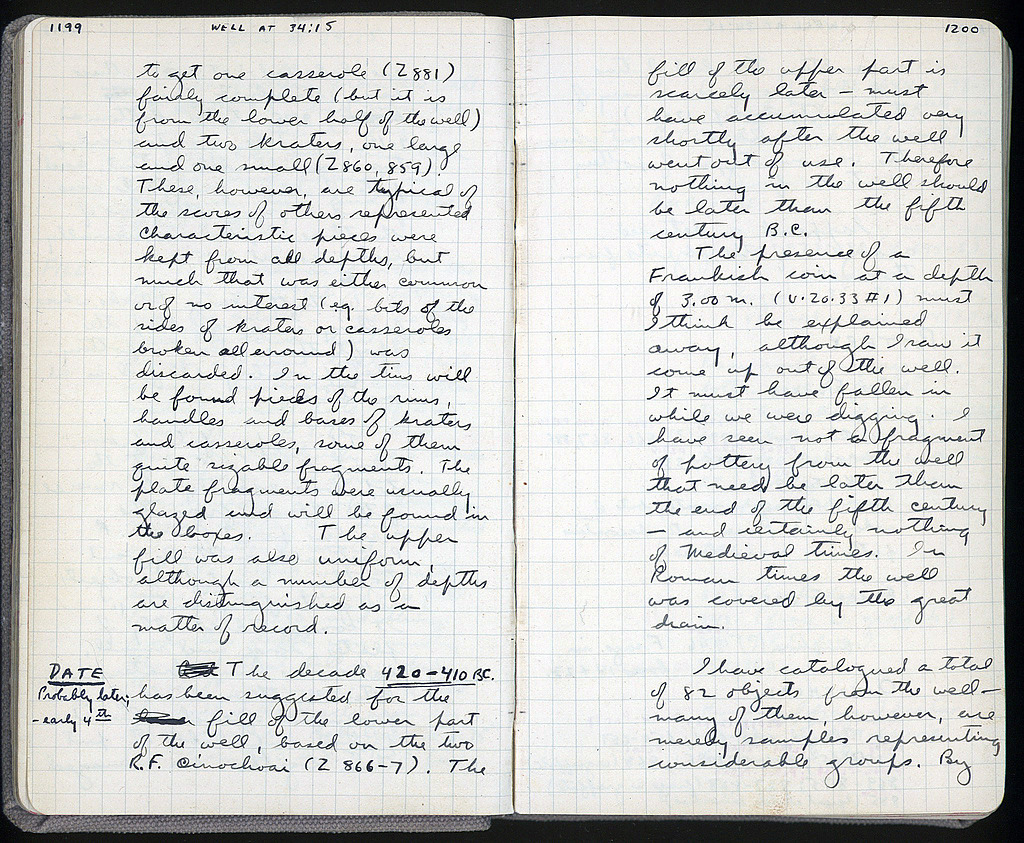 1199
WELL AT 34:15
to get one casserole (Z 881)
fairly complete (but it is
from the lower half of the well)
and two kraters, one large
and one small (Z 860, 859).
These, however, are typical of
the scores of others represented
characteristic pieces were
kept from all depths, but
much that was either common
or of no interest (eg. bits of the
sides of kraters or casseroles
broken all around) was
discarded. In the tins will
be found pieces of the rims,
handles and bases of kraters
and casseroles, some of them
quite sizable fragments. The
plate fragments were usually
glazed and will be found in
the boxes. The upper
fill was also uniform,
although a number of depths
are distinguished as a
matter of record.
DATE
Probably later,
- early 4th
The decade 420-410 BC.
has been suggested for the
fill of the lower part
of the well, based on the two
R.F. oinochoai (Z 866-7). The
1200
fill of the upper part is
scarcely later - must
have accumulated very
shortly after the well
went out of use. Therefore
nothing in the well should
be later than the fifth
century B.C.
The presence of a
Frankish coin at a depth
of 3.00 m. (V.20.33 #1) must
I think be explained
away, although I saw it
come up out of the well.
It must have fallen in
while we were digging. I
have seen not a fragment
of pottery from the well
that need be later than
the end of the fifth century
- and certainly nothing
of Medieval times. In
Roman times the well
was covered by the great
drain.
I have catalogued a total
of 82 objects from the well -
many of them, however, are
merely samples representing
considerable groups. By